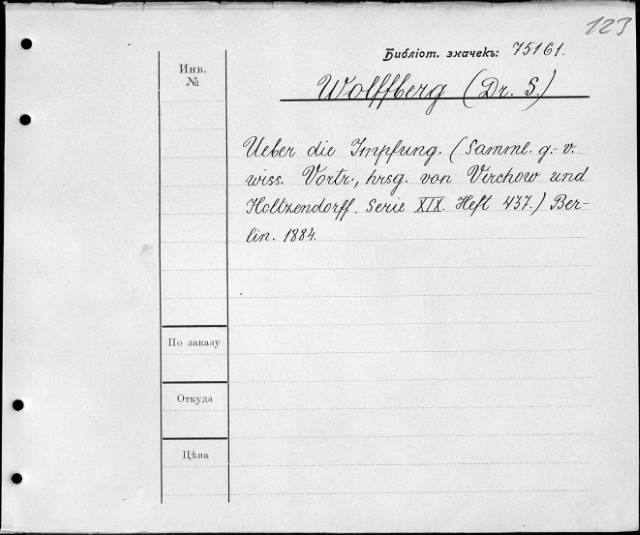 123
Библіот. значекъ: 75161.
Инв.
№
Wolffberg (Dr. S.)
Ueber die Impfung. (Samml. g.-v.
wiss. Vortr., hrsg. von Virchow und
Holtzendorff. Serie XIX. Heft 437.) Ber-
lin. 1884.
По заказу
Откуда
Цѣна